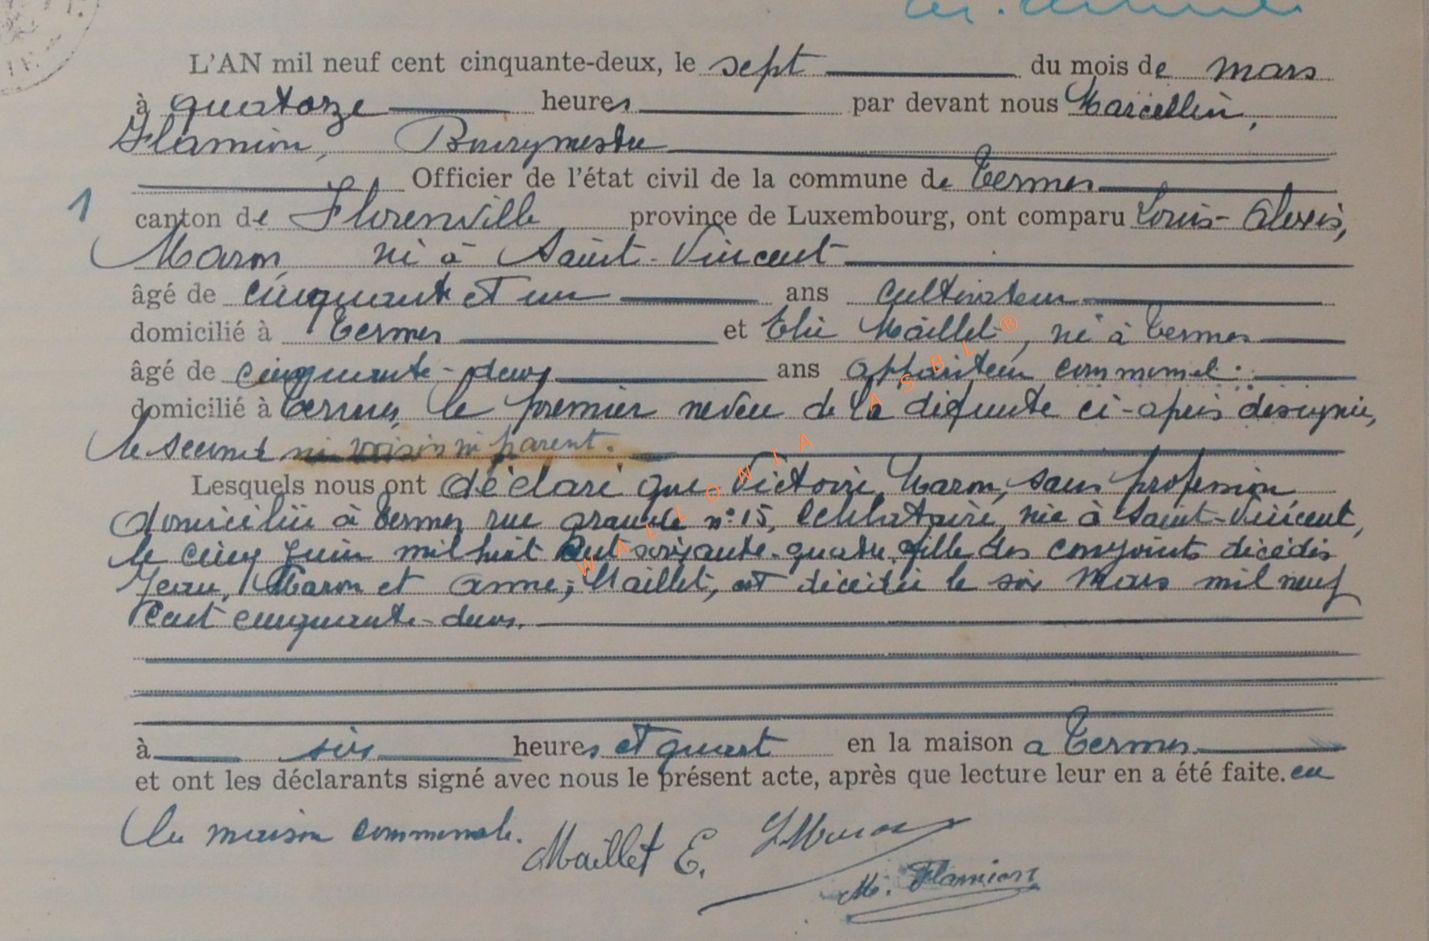 L'AN mil neuf cent cinquante-deux, le sept du mois de mars
à quatorze heures par devant nous Marcellin,
Flamion, Bourgmestre
Officier de l'état civil de la commune de Termes
1
canton de Florenville province de Luxembourg, ont comparu Louis-Alexis,
Maron né à Saint-Vincent
âgé de cinquante et un ans cultivateur
domicilié à Termes et Elie Maillet, né à Termes
âgé de cinquante-deux ans appariteur communal.
domicilié à Termes, le premier neveu de la défunte ci-après désignée,
le second ni voisin ni parent.
Lesquels nous ont déclaré que Victoire, Maron, sans profession,
domiciliée à Termes rue grande n°15, célibataire, née à Saint-Vincent,
le cinq juin mil huit cent soixante-quatre, fille des conjoints décédés
Jean, Maron et Anne, Maillet, est décédée le six mars mil neuf
cent cinquante-deux.
à six heures et quart en la maison a Termes
et ont les déclarants signé avec nous le présent acte, après que lecture leur en a été faite. en
la maison communale.
Maillet E. L Maron
M. Flamion
WALLONIA ASBL ®